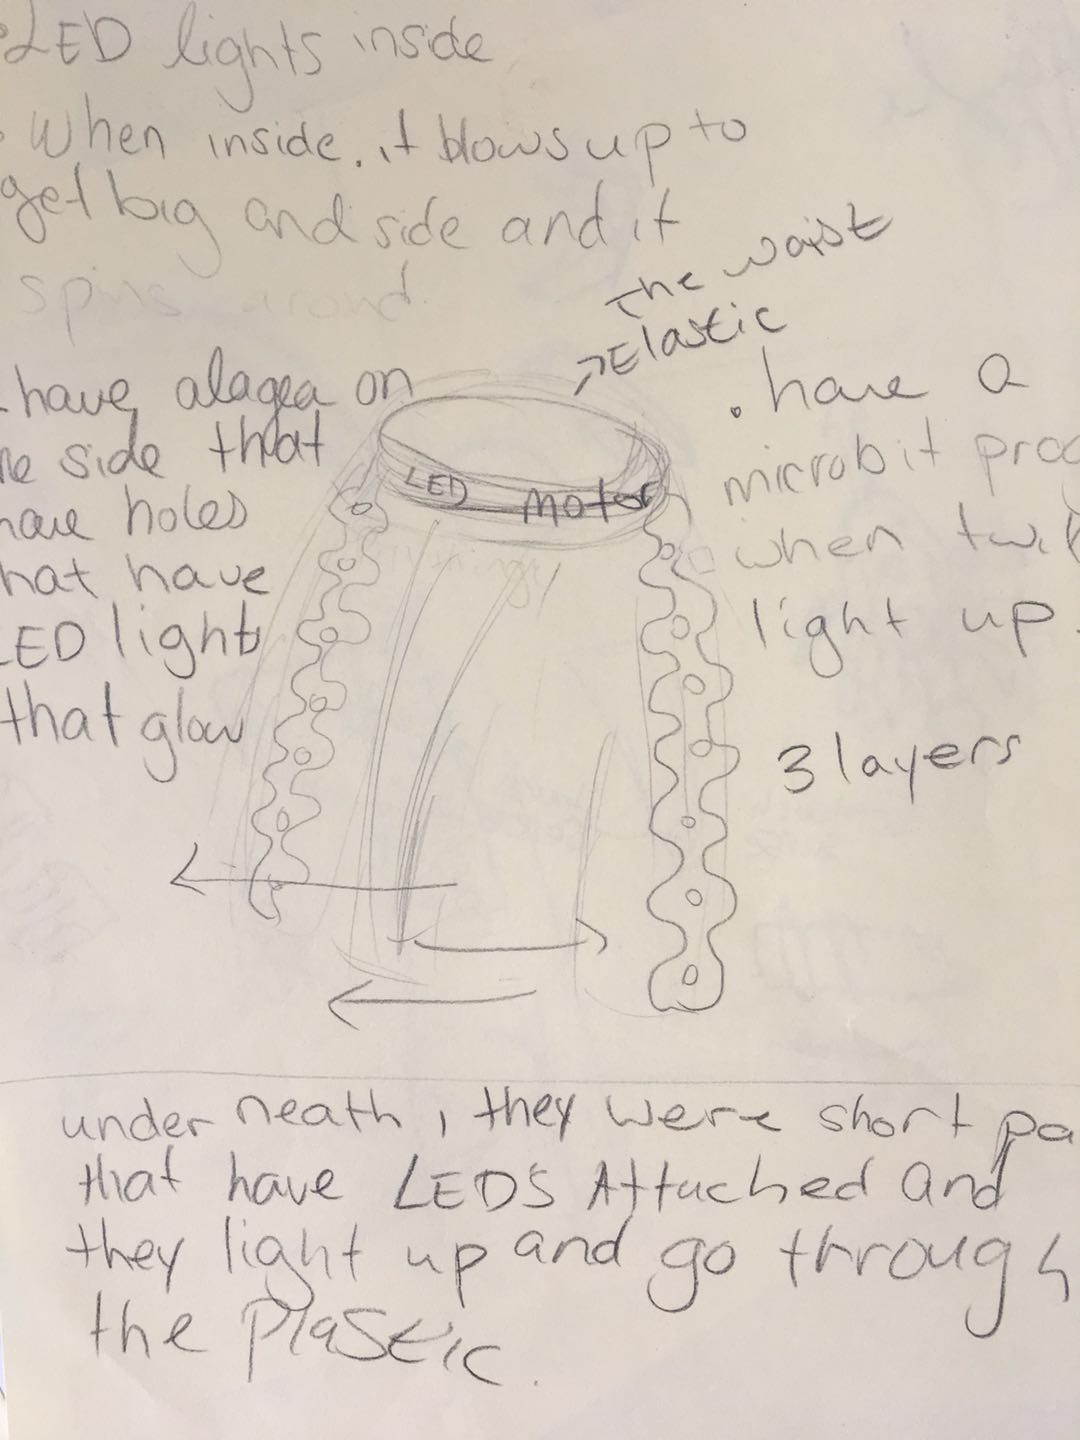 LED lights inside
When inside, it blows up to
get big and side and it
spins around.
The waist
Elastic
have alagea on
side that
have holes
that have
LED lights
that glow
LED motor
. have a
microbit prog
when twi
light up.
3 layers
under neath, they were short pa
that have LEDS Attached and
they light up and go through
the PlaStic.